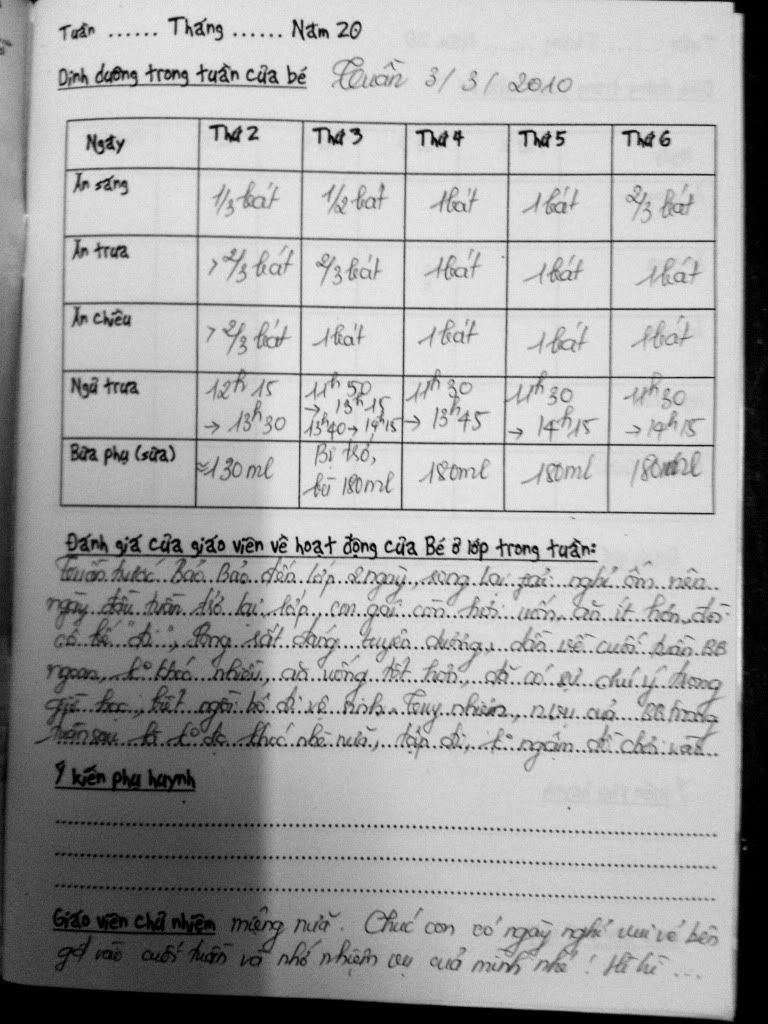 Tuần ...... Tháng ...... Năm 20
Dinh dưỡng trong tuần của bé Tuần 3/3/2010
Ngày Thứ 2 Thứ 3 Thứ 4 Thứ 5 Thứ 6
Ăn sáng 1/3 bát 1/2 bát 1 bát 1 bát 2/3 bát
Ăn trưa > 2/3 bát 2/3 bát 1 bát 1 bát 1 bát
Ăn chiều > 2/3 bát 1 bát 1 bát 1 bát 1 bát
Ngủ trưa 12h15 → 13h30 11h50 → 13h15 13h40 → 14h15 11h30 → 13h45 11h30 → 14h15 11h30 → 14h15
Bữa phụ (sữa) ≈ 130ml Bị trớ, bù 180ml 180ml 180ml 180ml
Đánh giá của giáo viên về hoạt động của Bé ở lớp trong tuần:
Tuần trước Bảo Bảo đến lớp 2 ngày, song lại phải nghỉ ốm nên
ngày đầu tuần trở lại lớp, con gái còn hơi uốn, ăn ít hơn, đòi
cô bế "đi", Song rất đáng tuyên dương, dần về cuối tuần BB
ngoan, ko khóc nhiều, ăn uống tốt hơn, đã có sự chú ý trong
giờ học, biết ngồi bô đi vệ sinh. Tuy nhiên, n.vụ của BB trong
tuần sau là ko đc khóc nhè nữa, tập đi, ko ngậm đồ chơi vào
Ý kiến phụ huynh
Giáo viên chủ nhiệm miệng nữa. Chúc con có ngày nghỉ vui vẻ bên
gđ vào cuối tuần và nhớ nhiệm vụ của mình nhé! Hì hì ...